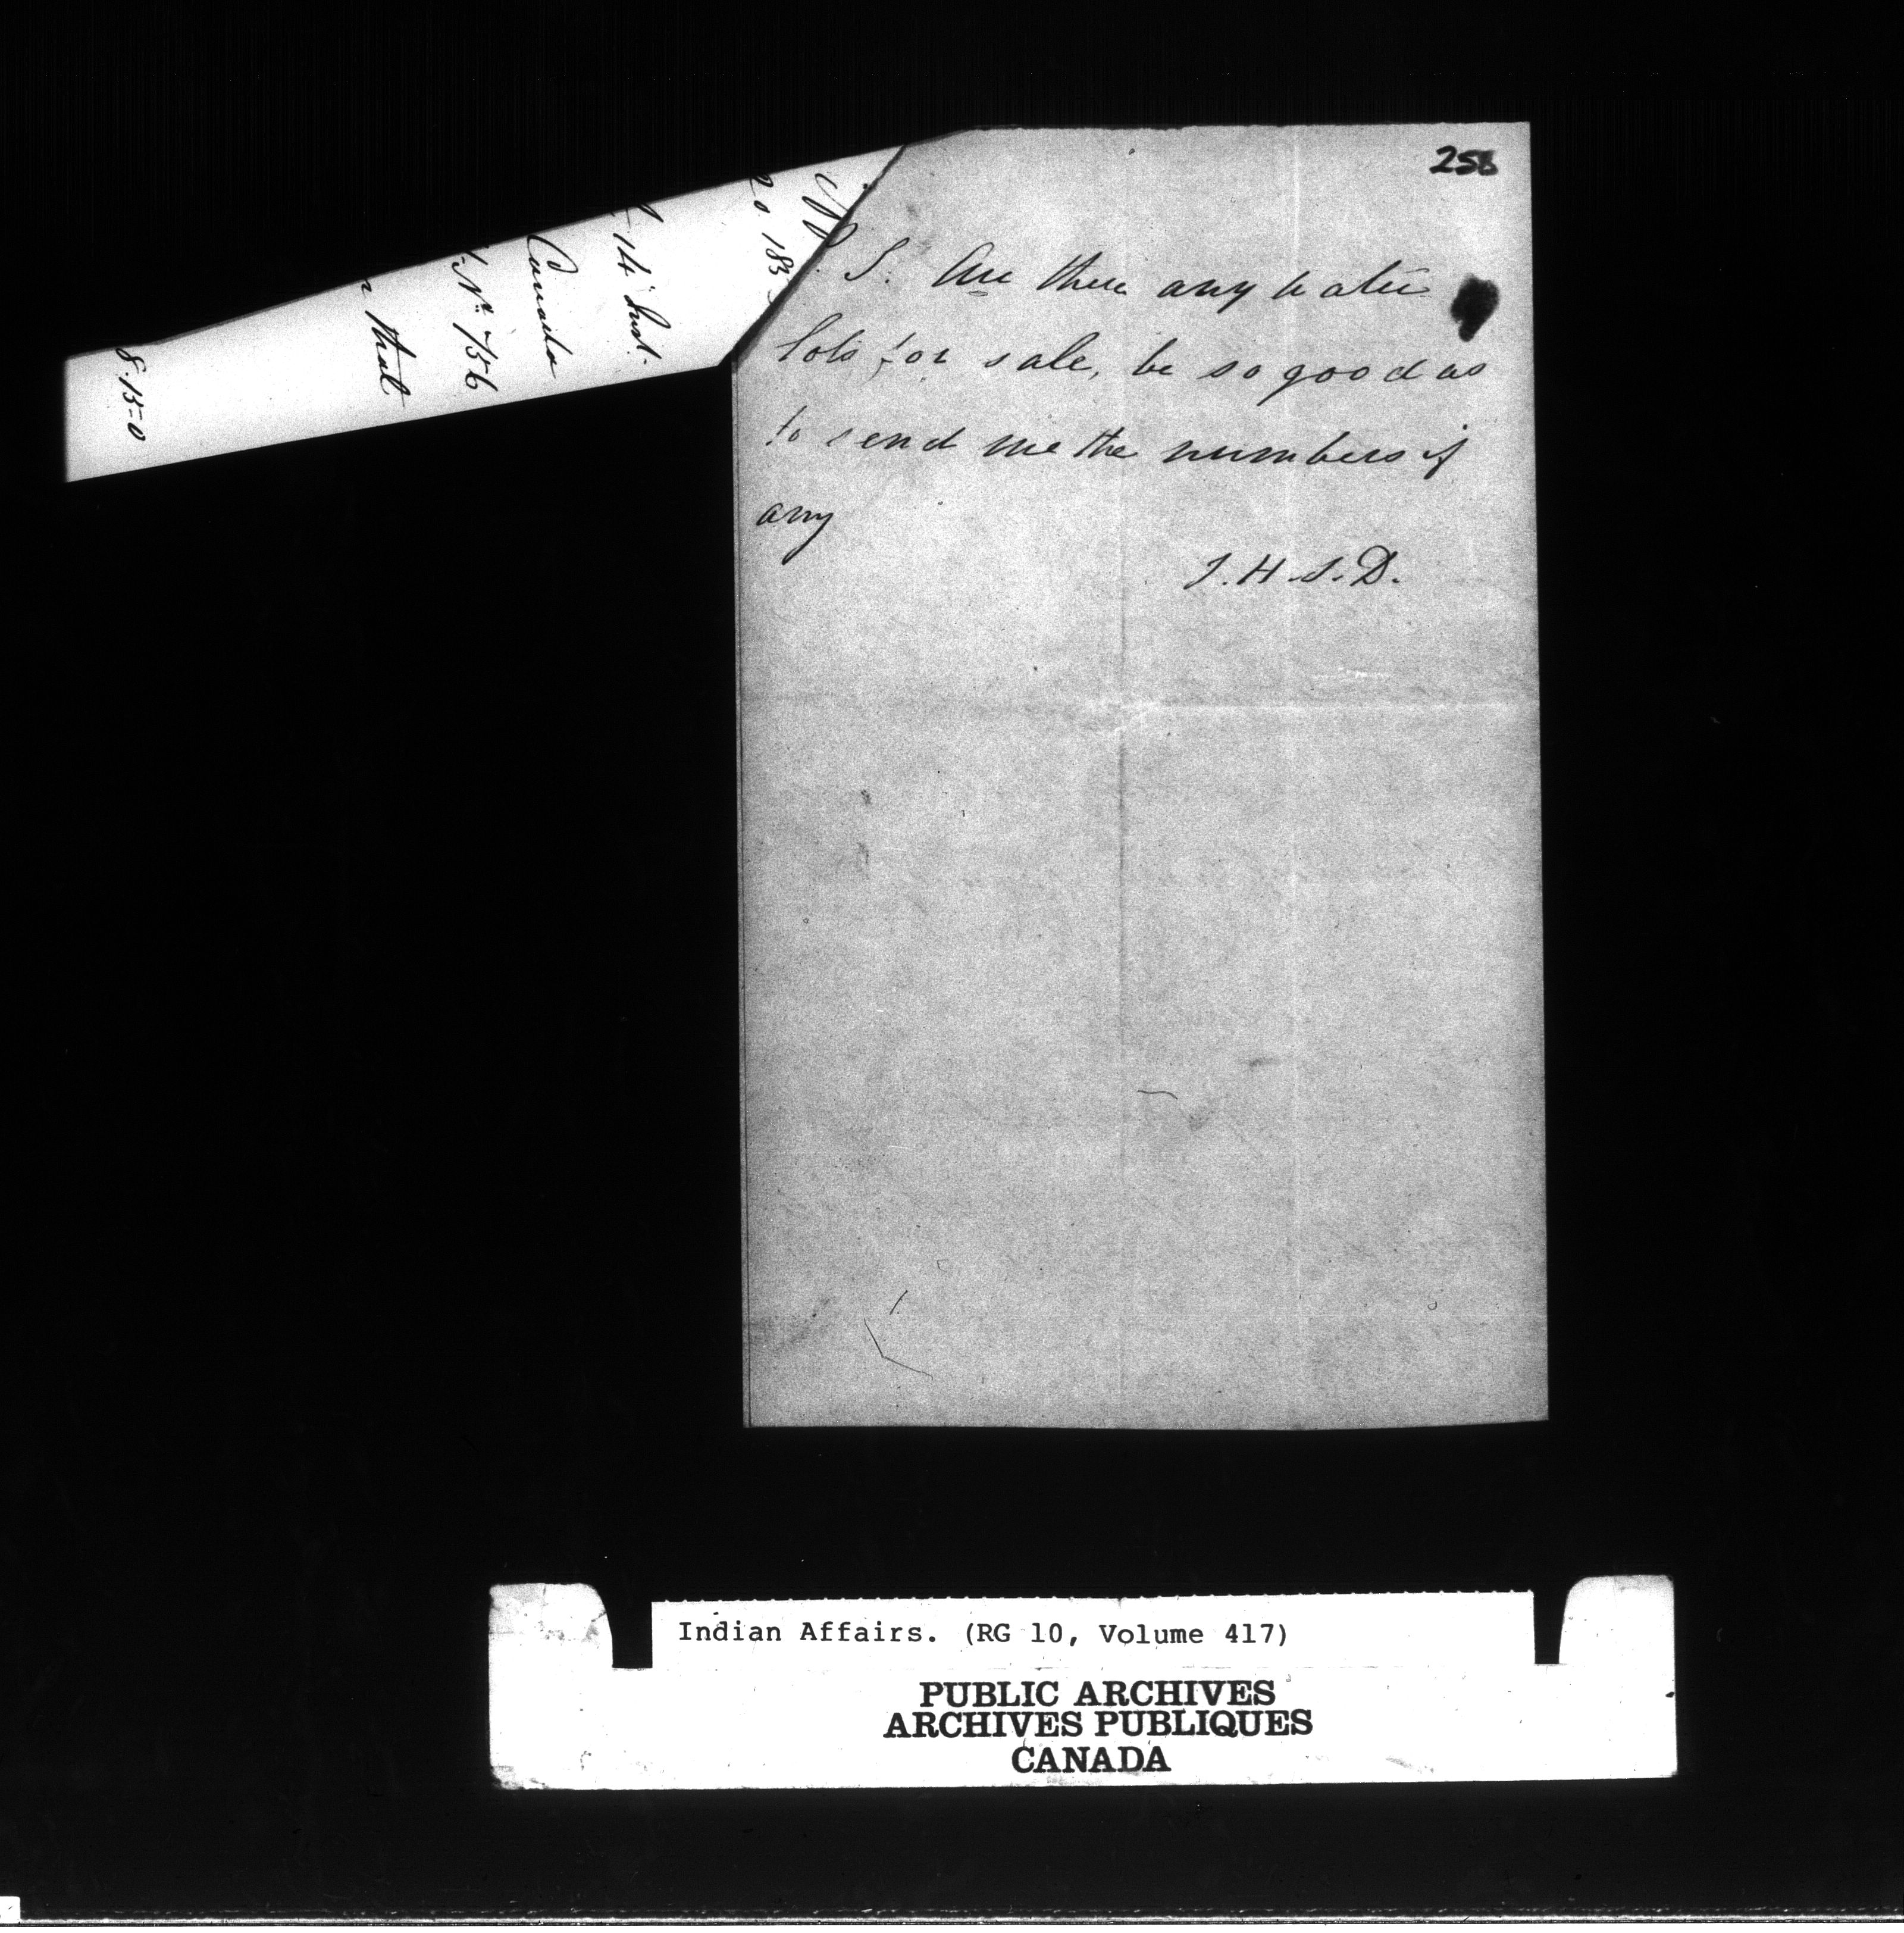 258
P. S. Are there any water
lots for sale, be so good as
to send me the numbers if
any
J. H. S. D.
20. 183
14 Inst.
Canada
No. 756
that
8.15-0
Indian Affairs. (RG 10, Volume 417)
PUBLIC ARCHIVES
ARCHIVES PUBLIQUES
CANADA